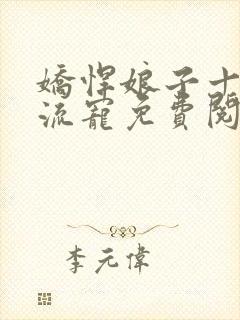 嬌悍娘子十
流寵免費閱
李元偉